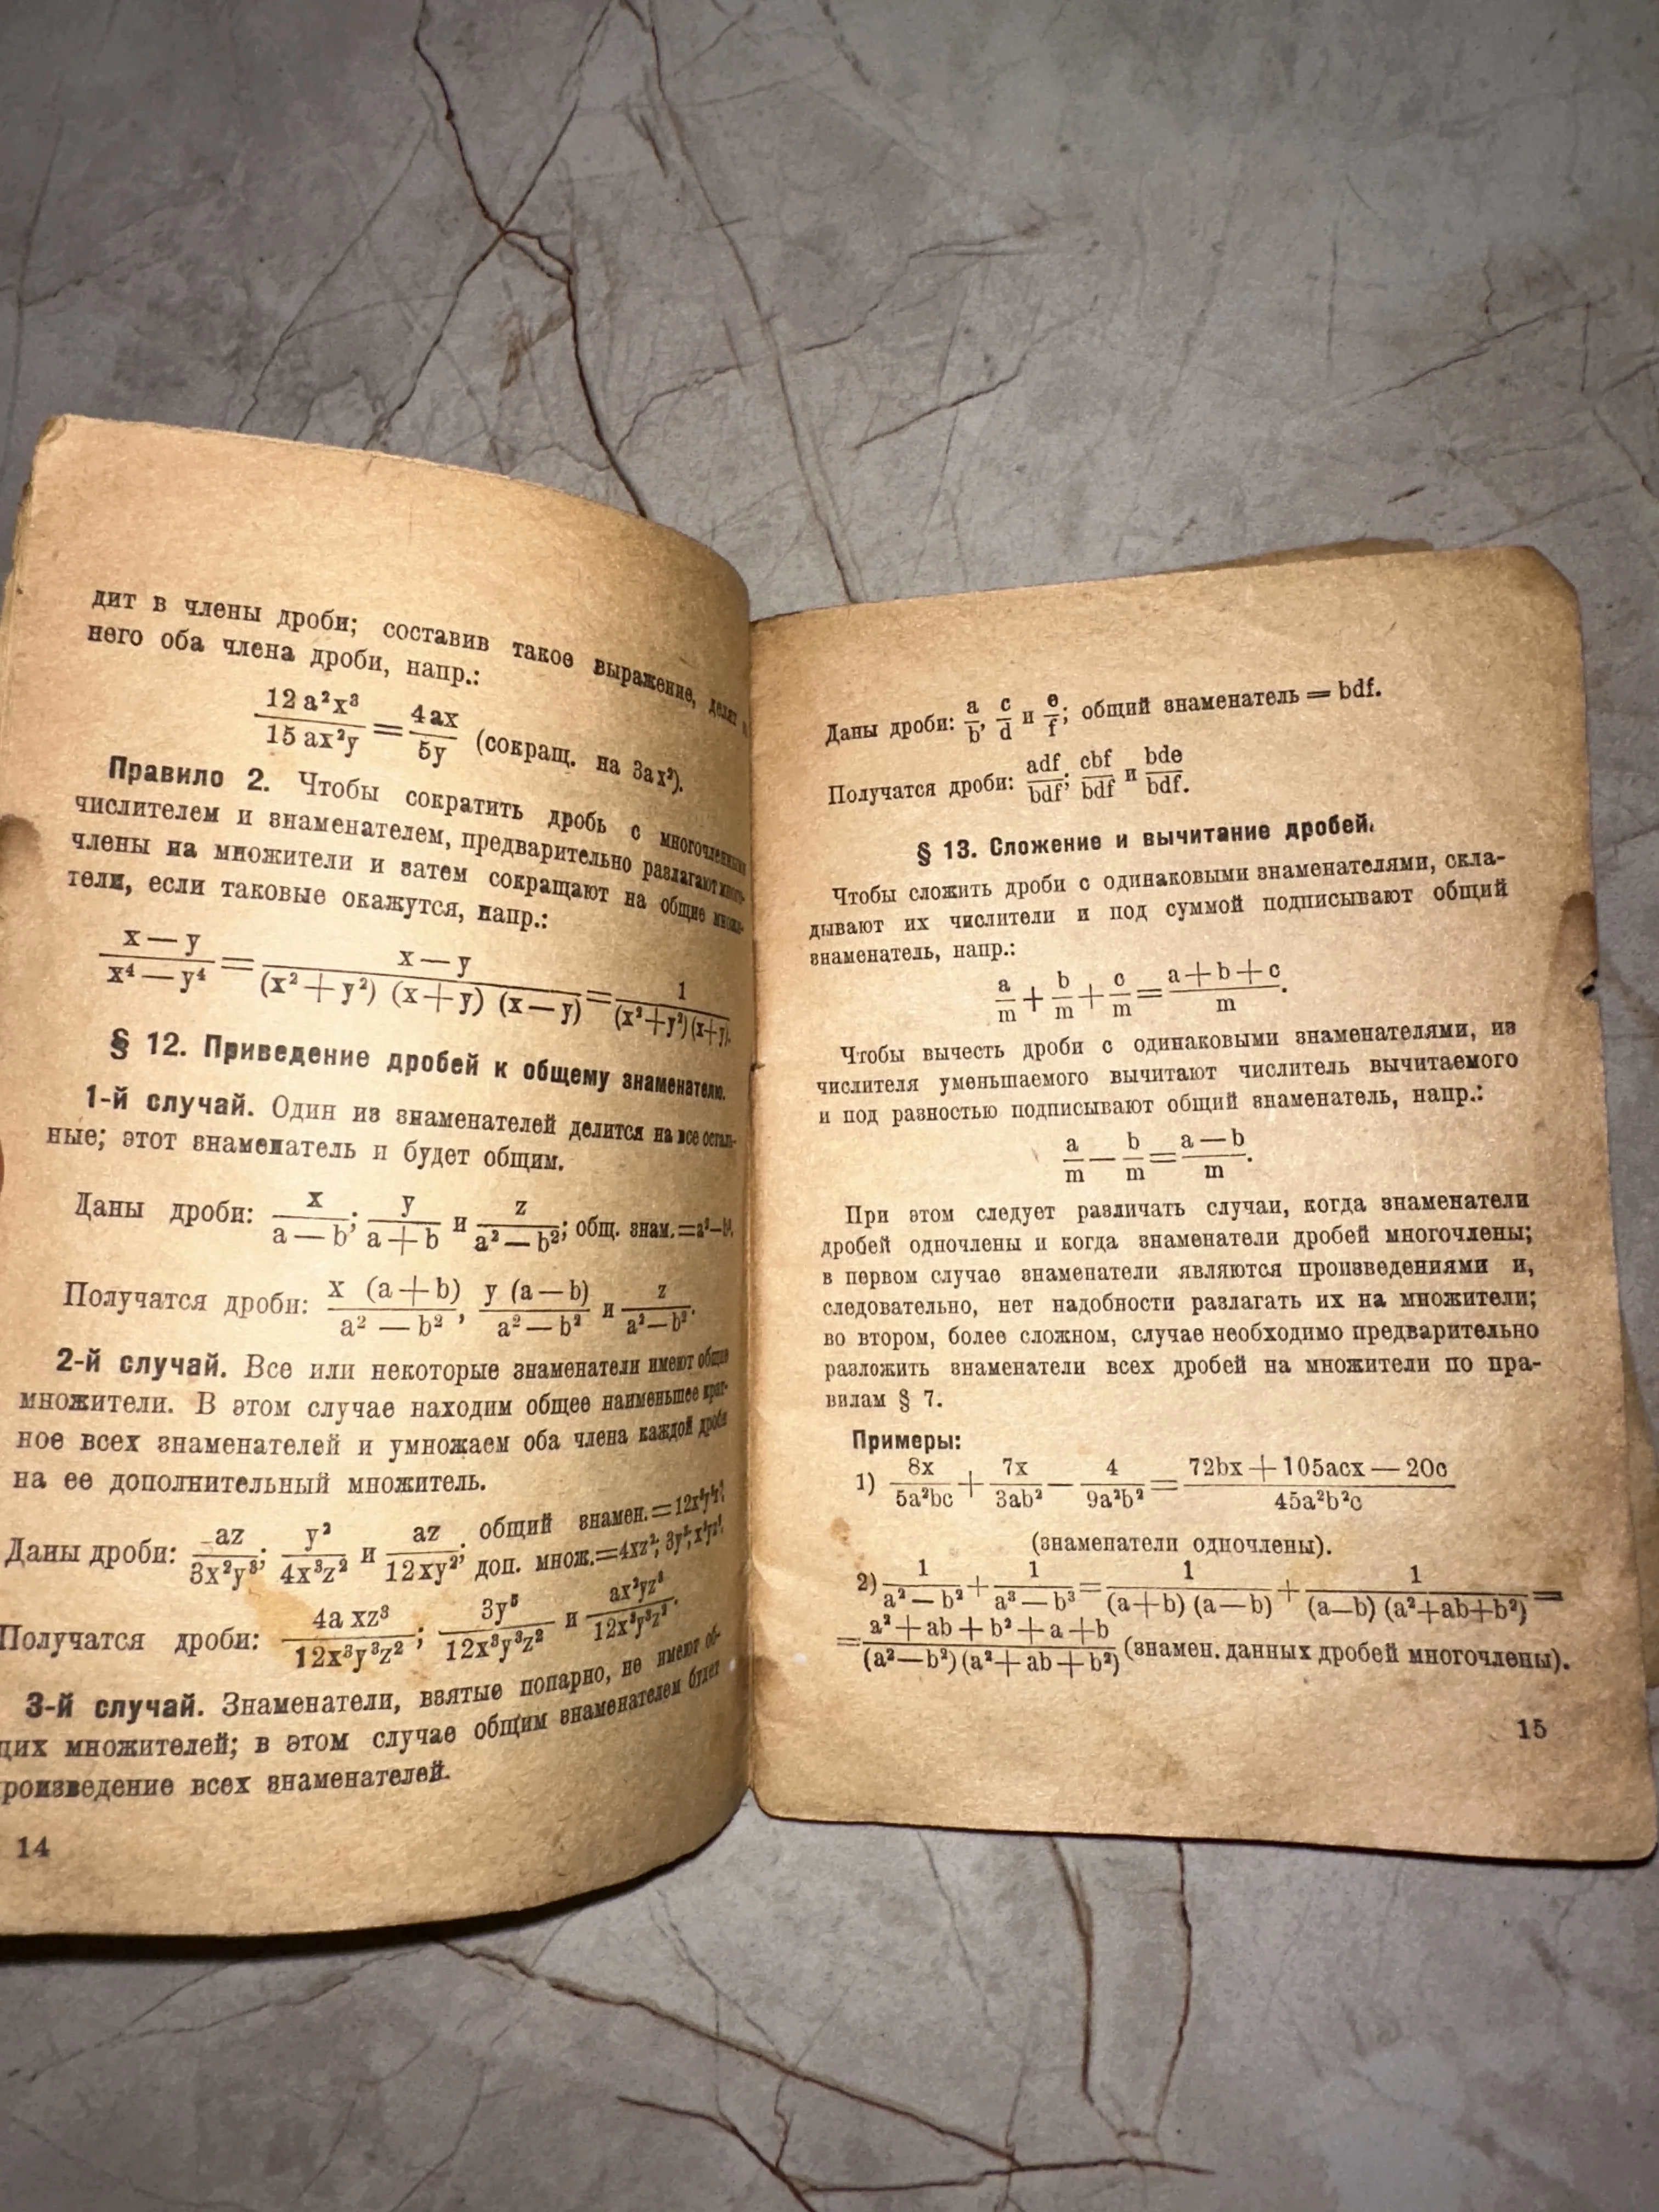 дит в члены дроби; составив такое выражение, делят н
него оба члена дроби, напр.:
12 a²x³ / 15 ax²y = 4 ax / 5y (сокращ. на 3ax²).
Правило 2. Чтобы сократить дробь с многочленными
числителем и знаменателем, предварительно разлагают много-
члены на множители и затем сокращают на общие множи-
тели, если таковые окажутся, напр.:
x — y / x⁴ — y⁴ = x — y / (x² + y²) (x + y) (x — y) = 1 / (x² + y²) (x + y).
§ 12. Приведение дробей к общему знаменателю.
1-й случай. Один из знаменателей делится на все осталь-
ные; этот знаменатель и будет общим.
Даны дроби: x / a — b; y / a + b и z / a² — b²; общ. знам. = a² — b².
Получатся дроби: x (a + b) / a² — b², y (a — b) / a² — b² и z / a² — b².
2-й случай. Все или некоторые знаменатели имеют общие
множители. В этом случае находим общее наименьшее крат-
ное всех знаменателей и умножаем оба члена каждой дроби
на ее дополнительный множитель.
Даны дроби: az / 3x²y³; y² / 4x³z² и az / 12xy²; общий знамен. = 12x³y³z²;
доп. множ. = 4xz²; 3y³;
Получатся дроби: 4a xz³ / 12x³y³z²; 3y⁵ / 12x³y³z² и ax²yz³ / 12x³y³z².
3-й случай. Знаменатели, взятые попарно, не имеют об-
щих множителей; в этом случае общим знаменателем будет
роизведение всех знаменателей.
14
Даны дроби: a / b, c / d и e / f; общий знаменатель = bdf.
Получатся дроби: adf / bdf; cbf / bdf и bde / bdf.
§ 13. Сложение и вычитание дробей.
Чтобы сложить дроби с одинаковыми знаменателями, скла-
дывают их числители и под суммой подписывают общий
знаменатель, напр.:
a / m + b / m + c / m = a + b + c / m.
Чтобы вычесть дроби с одинаковыми знаменателями, из
числителя уменьшаемого вычитают числитель вычитаемого
и под разностью подписывают общий знаменатель, напр.:
a / m — b / m = a — b / m.
При этом следует различать случаи, когда знаменатели
дробей одночлены и когда знаменатели дробей многочлены;
в первом случае знаменатели являются произведениями и,
следовательно, нет надобности разлагать их на множители;
во втором, более сложном, случае необходимо предварительно
разложить знаменатели всех дробей на множители по пра-
вилам § 7.
Примеры:
1) 8x / 5a²bc + 7x / 3ab² — 4 / 9a²b² = 72bx + 105acx — 20c / 45a²b²c
(знаменатели одночлены).
2) 1 / a² — b² + 1 / a³ — b³ = 1 / (a + b) (a — b) + 1 / (a — b) (a² + ab + b²) =
= a² + ab + b² + a + b / (a² — b²) (a² + ab + b²) (знамен. данных дробей многочлены).
15